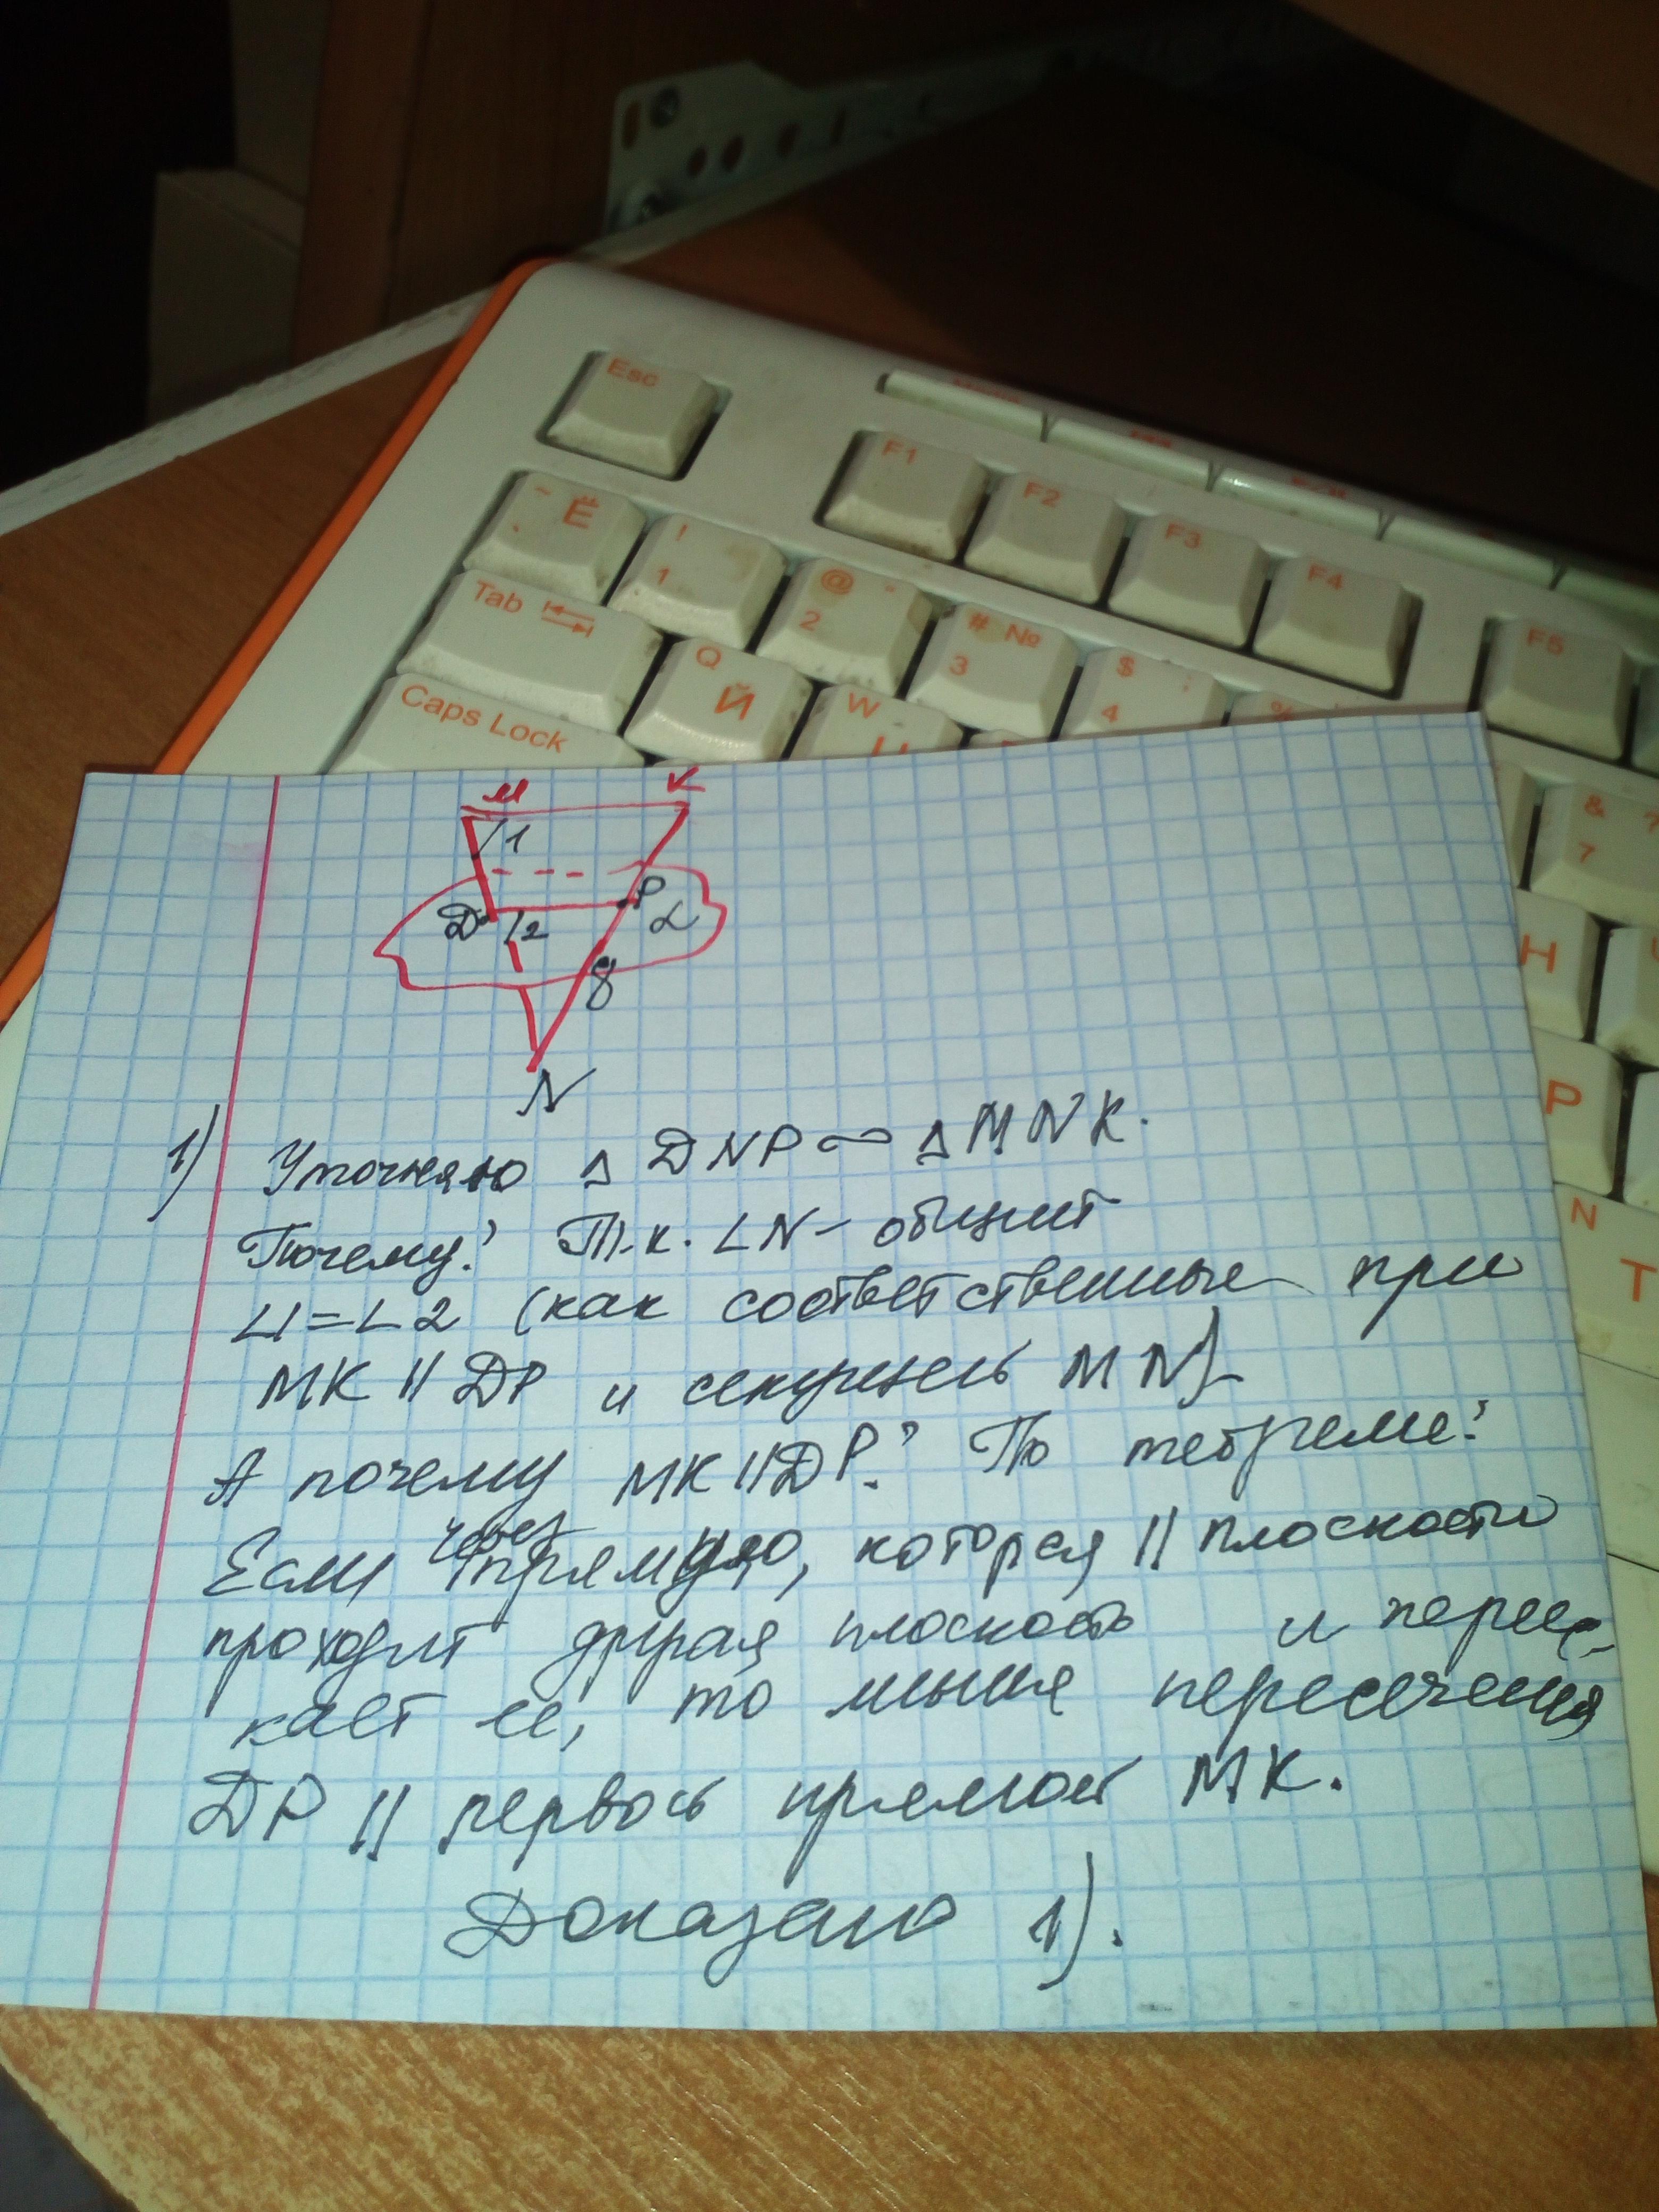 Esc
F1
F2
F3
F4
F5
~ Ё
! 1
@ " 2
# № 3
$ ; 4
%
& ? 7
Tab
Q Й
W Ц
Caps Lock
Н
Р
N Т
М К
1
D P
2 α
8
N
1) Уточняю Δ DNP ∾ Δ MNK.
Почему? Т.к. ∠N - общий
∠1=∠2 (как соответственные при
MK || DP и секущей MN).
А почему MK || DP? По теореме:
Если через прямую, которая || плоскости
проходит другая плоскость и пересе-
кает её, то линия пересечения
DP || первой прямой MK.
Доказано 1).